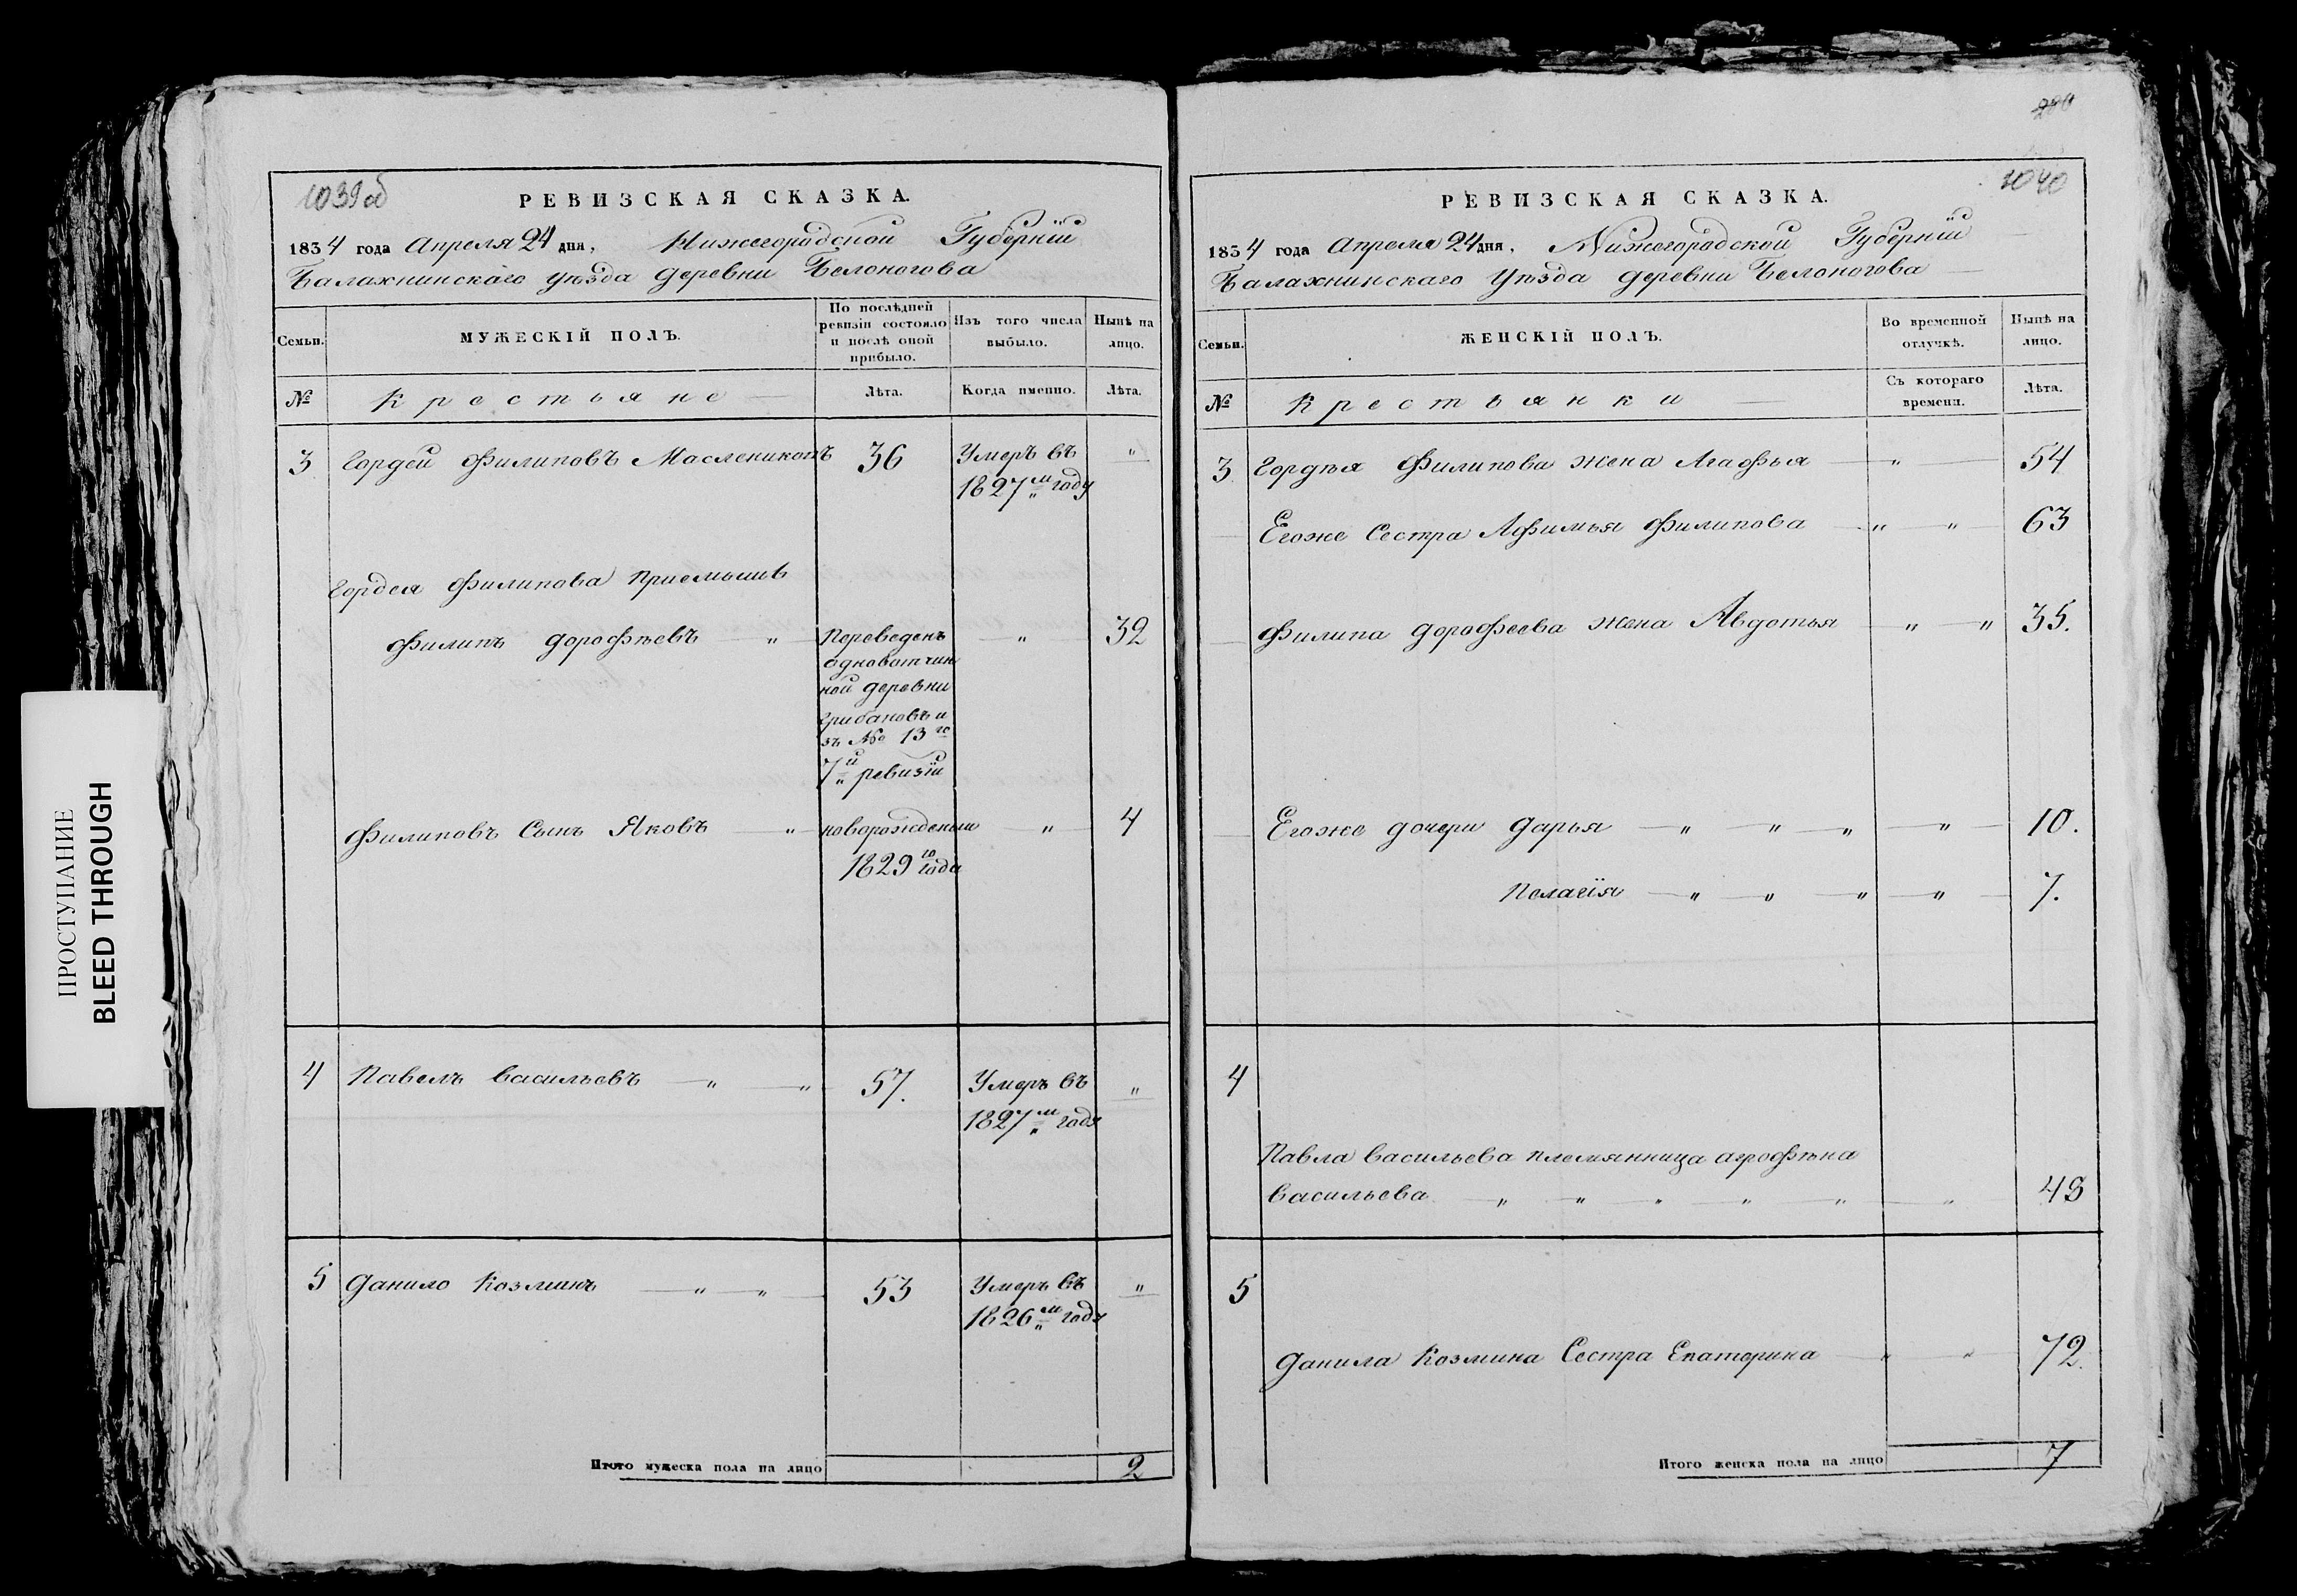 ПРОСТУПАНИЕ
BLEED THROUGH
1039об
РЕВИЗСКАЯ СКАЗКА.
1834 года Апреля 24 дня, Нижегородской Губернїи
Балахнинскаго уѣзда деревни Белоногова
Семьи. МУЖЕСКІЙ ПОЛЪ. По послѣдней ревизіи состояло и послѣ оной прибыло. Изъ того числа выбыло. Нынѣ на лицо.
№ Крестьяне Лѣта. Когда именно. Лѣта.
3 Гордей Филиповъ Маслениковъ 36 Умеръ въ "
1827м году
Гордея Филипова приемышъ
Филипъ дорофѣевъ " Переведенъ " 32
одновотчин
ной деревни
Грибановъ и
зъ № 13го
7й ревизїи
Филиповъ Сынъ Яковъ " новорожденый " 4
1829го года
4 Павелъ Васильевъ " " 57. Умеръ въ "
1827м году
5 Данило Козминъ " " 53 Умеръ въ "
1826м году
Итого мужеска пола на лицо 2
200
1040
РЕВИЗСКАЯ СКАЗКА.
1834 года Апреля 24 дня, Нижегородской Губернїи
Балахнинскаго уѣзда деревни Белоногова
Семьи. ЖЕНСКІЙ ПОЛЪ. Во временной отлучкѣ. Нынѣ на лицо.
№ Крестьянки Съ котораго времени. Лѣта.
3 Гордѣя Филипова жена Агафья " 54
Егоже Сестра Афимья Филипова " " 63
Филипа дорофеева жена Авдотья " " 35.
Егоже дочери Дарья " " " " 10.
Пелагїя " " " " 7.
4
Павла Васильева племянница агрофѣна
Васильева " " " " " " 48
5
Данила Козмина Сестра Екатерина " " 72.
Итого женска пола на лицо 7